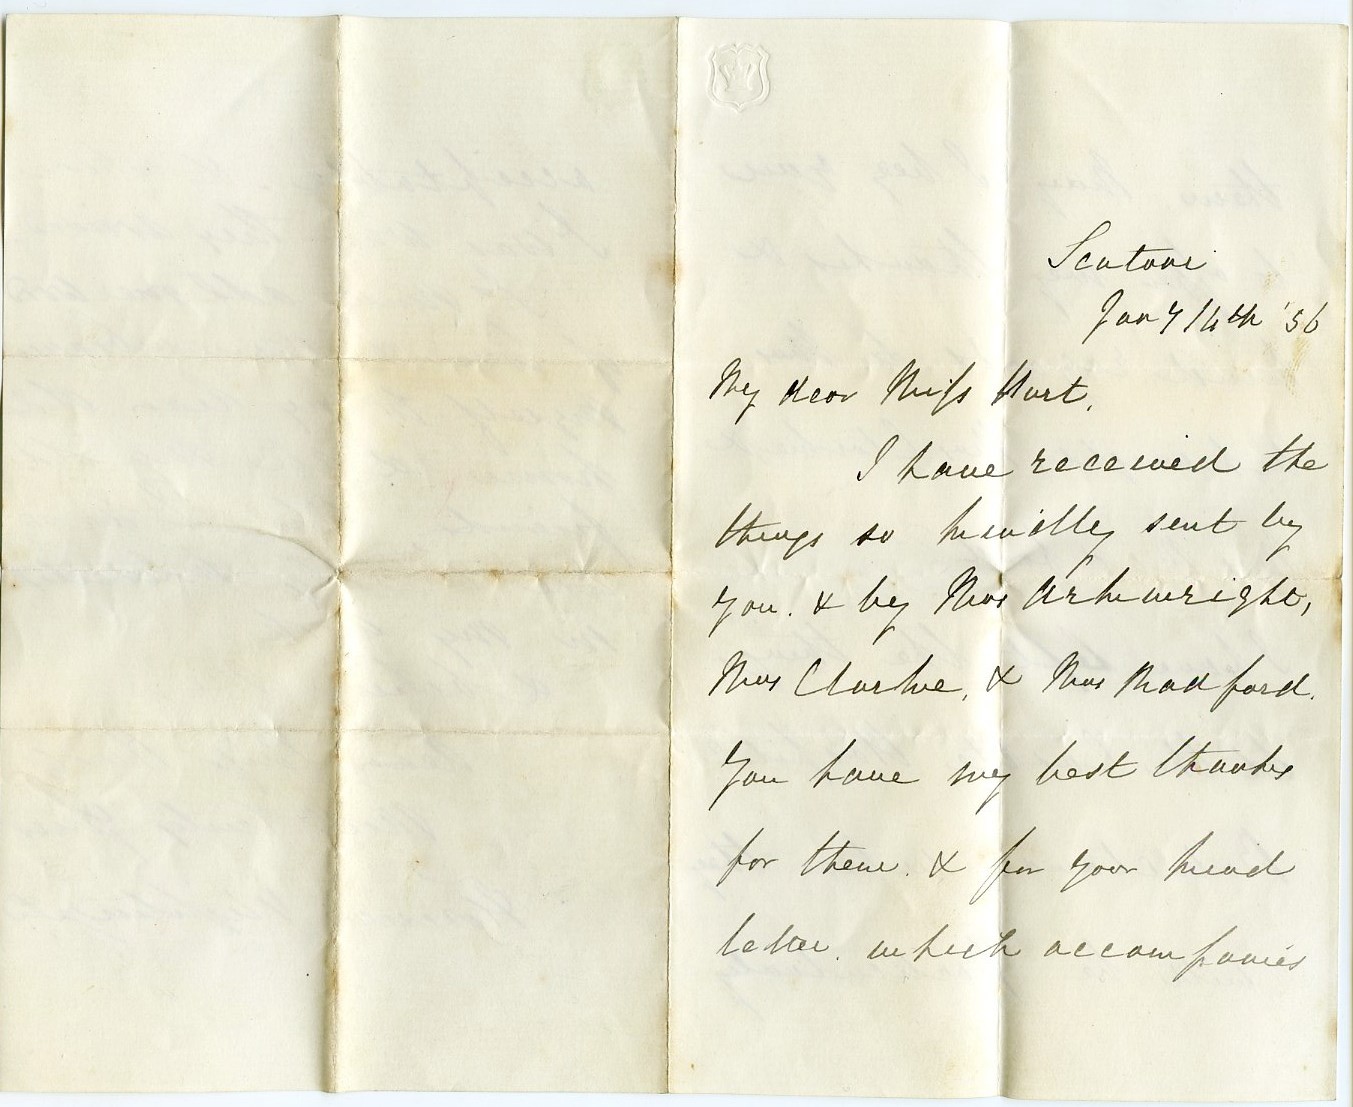 Scutari
Jany 14th '56
My dear Miss Hurt,
I have received the
things so kindly sent by
you. & by Mrs Arkwright,
Mrs Clarke, & Mrs Radford.
You have my best thanks
for them. & for your kind
letter. which accompanies